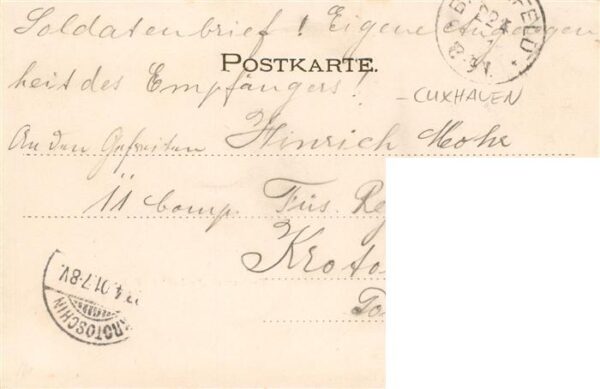 Soldatenbrief! Eigene Angelegen
heit des Empfängers!
POSTKARTE.
- CUXHAVEN
An den Gefreiten Hinrich Mohr
11 Comp. Füs. Re
Kroto
Po
4.01.7-8V.
KROTOSCHIN